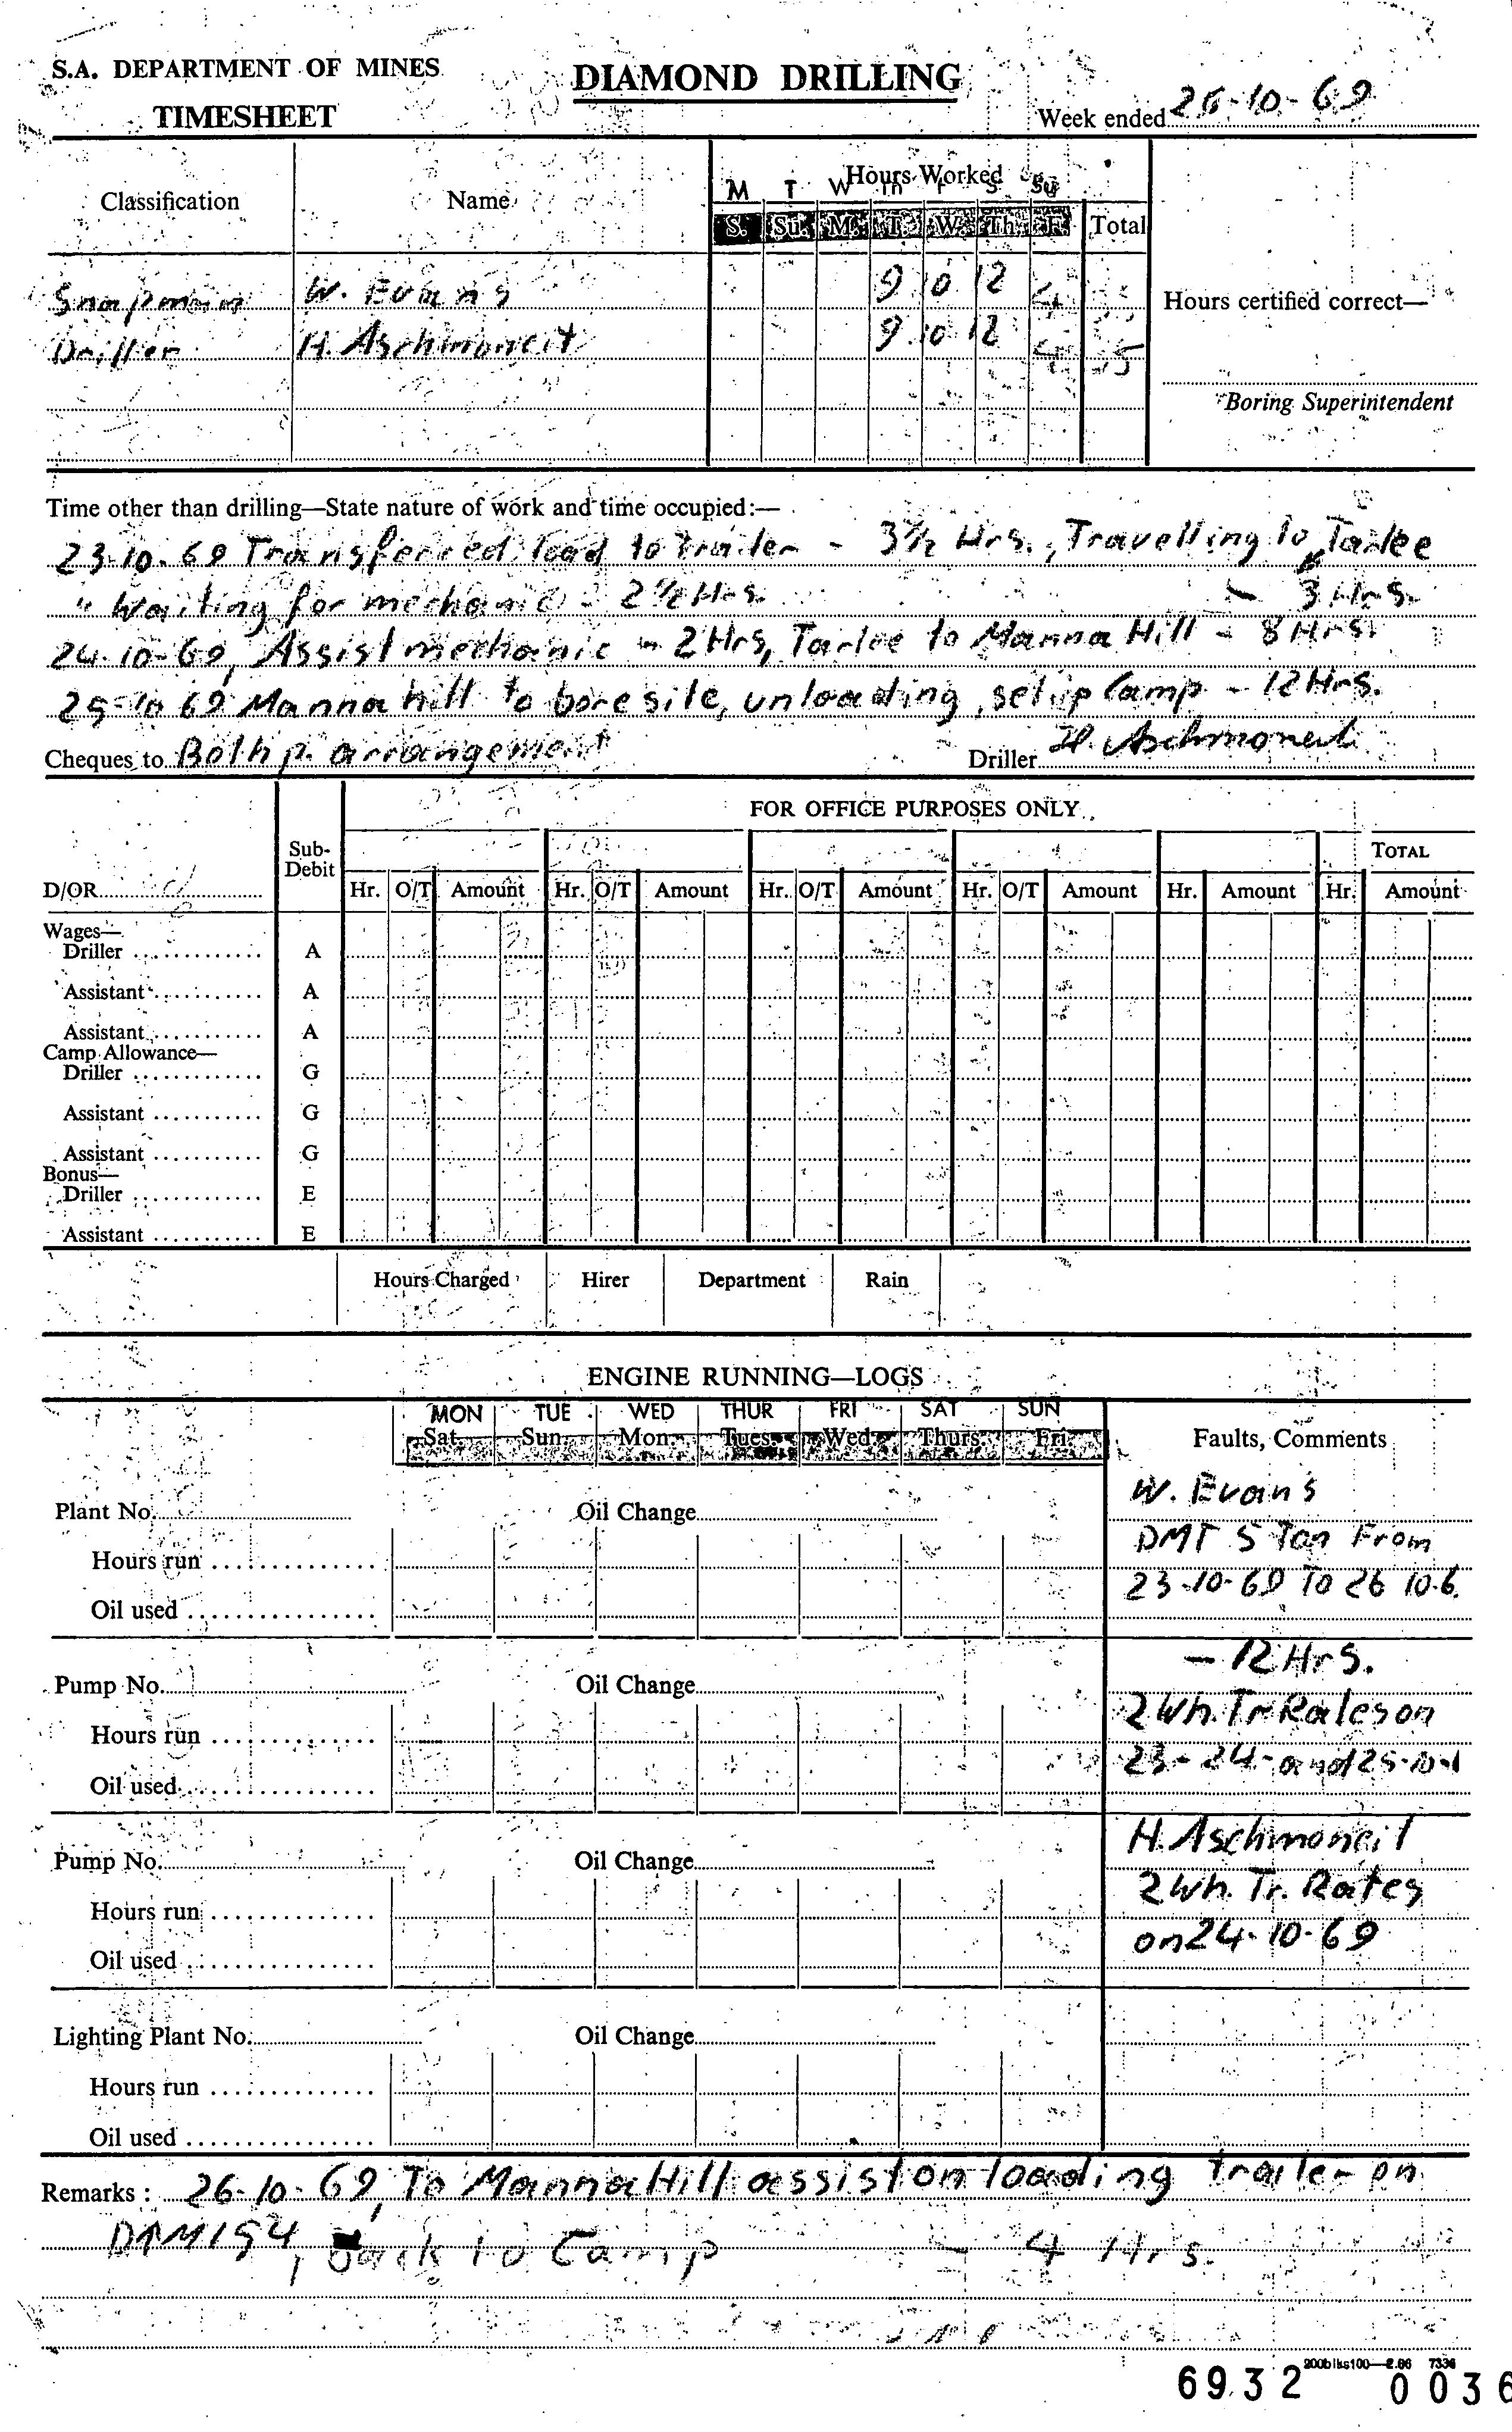 S.A. DEPARTMENT OF MINES
TIMESHEET
DIAMOND DRILLING
Week ended 26-10-69
Classification Name Hours Worked
M T W Th F S Su
S. Su. M. T. W. Th. F. Total
W. Evans 9 10 12 4
Driller H. Aschmoneit 9 10 12 4 35
Hours certified correct—
Boring Superintendent
Time other than drilling—State nature of work and time occupied:—
23-10-69 Transferred load to trailer - 3½ Hrs., Travelling to Tarlee
" Waiting for mechanic - 2½ Hrs. - 3 Hrs.
24-10-69, Assist mechanic - 2 Hrs, Tarlee to Manna Hill - 8 Hrs.
25-10 69 Manna hill to bore site, unloading, set up Camp - 12 Hrs.
Cheques to Both p. arrangement Driller H. Aschmoneit
FOR OFFICE PURPOSES ONLY
D/OR Sub-Debit TOTAL
Hr. O/T Amount Hr. O/T Amount Hr. O/T Amount Hr. O/T Amount Hr. Amount Hr. Amount
Wages—
Driller A
Assistant A
Assistant A
Camp Allowance—
Driller G
Assistant G
Assistant G
Bonus—
Driller E
Assistant E
Hours Charged Hirer Department Rain
ENGINE RUNNING—LOGS
MON TUE WED THUR FRI SAT SUN
Sat. Sun. Mon. Tues. Wed. Thurs. Fri. Faults, Comments
W. Evans
Plant No. Oil Change
DMT 5 Ton From
Hours run
23-10-69 To 26 10.6.
Oil used
- 12 Hrs.
Pump No. Oil Change
2 Wh. Tr Rates on
Hours run
23- 24- and 25-10-
Oil used
H. Aschmoneit
Pump No. Oil Change
2 Wh. Tr. Rates
Hours run
on 24-10-69
Oil used
Lighting Plant No. Oil Change
Hours run
Oil used
Remarks: 26-10-69, To Manna Hill assist on loading trailer on
, back to Camp - 4 Hrs.
200blks100—2.66 7336
6932 0036